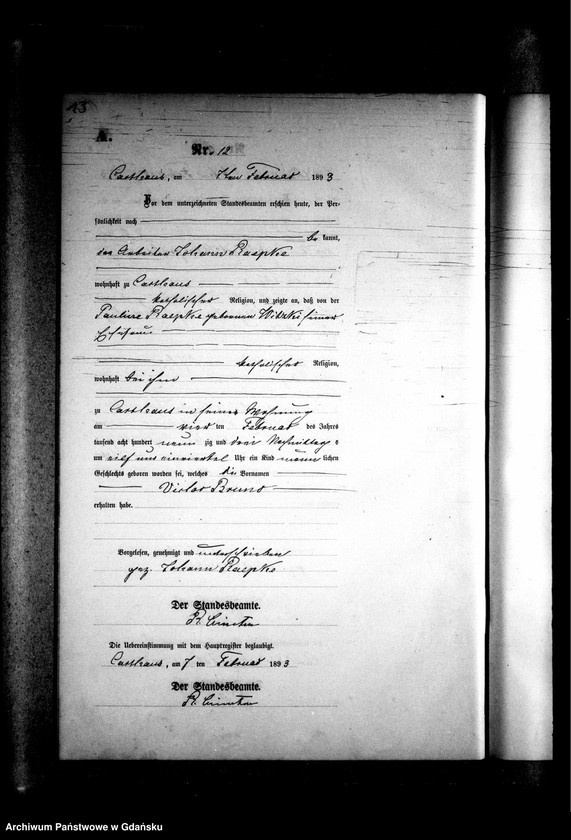 13
A.
Nr. 12
Carthaus, am 7ten Februar 1893
Vor dem unterzeichneten Standesbeamten erschien heute, der Per-
sönlichkeit nach
bekannt,
der Arbeiter Johann
wohnhaft zu Carthaus
katholischer Religion, und zeigte an, daß von der
Pauline geborenen seiner
Ehefrau
katholischer Religion,
wohnhaft bei ihm
zu Carthaus in seiner Wohnung
am vierten Februar des Jahres
tausend acht hundert neunzig und drei Nachmittags
um elf und einviertel Uhr ein Kind männlichen
Geschlechts geboren worden sei, welches die Vornamen
Victor Bruno
erhalten habe.
Vorgelesen, genehmigt und unterschrieben
gez. Johann
Der Standesbeamte.
Die Uebereinstimmung mit dem Hauptregister beglaubigt.
Carthaus, am 7ten Februar 1893
Der Standesbeamte.
Archiwum Państwowe w Gdańsku